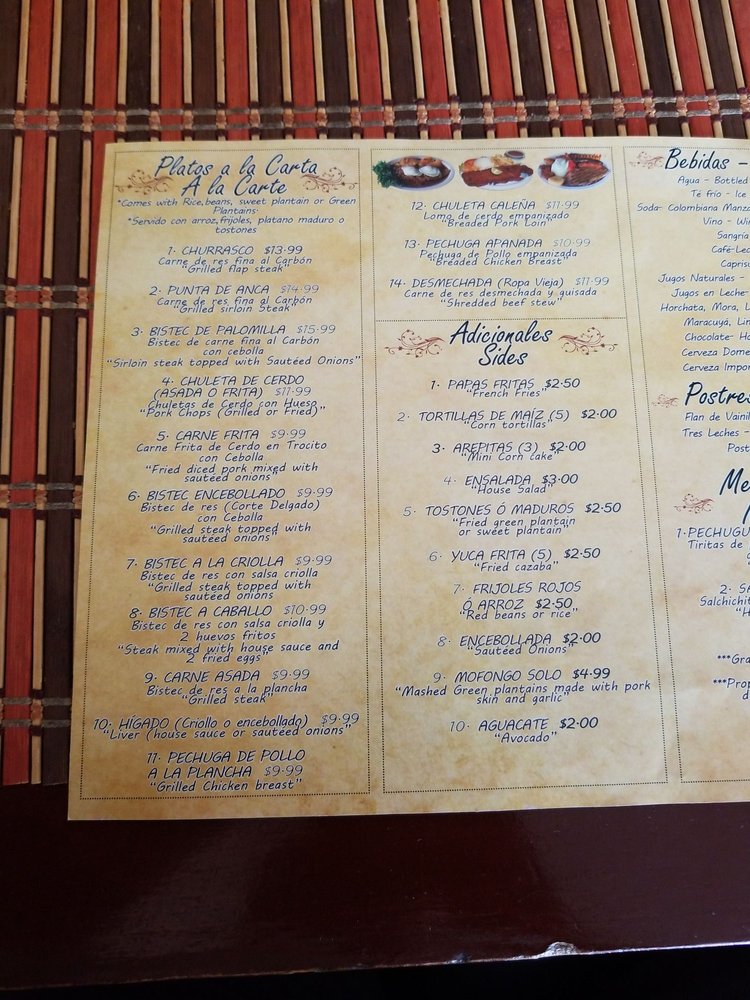 Platos a la Carta
A la Carte
*Comes with Rice, beans, sweet plantain or Green
Plantains.
*Servido con arroz, frijoles, platano maduro o
tostones
1. CHURRASCO $13.99
Carne de res fina al Carbón
"Grilled flap steak"
2. PUNTA DE ANCA $14.99
Carne de res fina al Carbón
"Grilled sirloin Steak"
3. BISTEC DE PALOMILLA $15.99
Bistec de carne fina al Carbón
con cebolla
"Sirloin steak topped with Sautéed Onions"
4. CHULETA DE CERDO
(ASADA O FRITA) $11.99
Chuletas de Cerdo con Hueso
"Pork Chops (Grilled or Fried)"
5. CARNE FRITA $9.99
Carne Frita de Cerdo en Trocito
con Cebolla
"Fried diced pork mixed with
sautéed onions"
6. BISTEC ENCEBOLLADO $9.99
Bistec de res (Corte Delgado)
con Cebolla
"Grilled steak topped with
sautéed onions"
7. BISTEC A LA CRIOLLA $9.99
Bistec de res con salsa criolla
"Grilled steak topped with
sautéed onions
8. BISTEC A CABALLO $10.99
Bistec de res con salsa criolla y
2 huevos fritos
"Steak mixed with house sauce and
2 fried eggs"
9. CARNE ASADA $9.99
Bistec de res a la plancha
"Grilled steak"
10. HÍGADO (Criollo o encebollado) $9.99
"Liver (house sauce or sautéed onions"
11. PECHUGA DE POLLO
A LA PLANCHA $9.99
"Grilled Chicken breast"
12. CHULETA CALEÑA $11.99
Lomo de cerdo empanizado
"Breaded Pork Loin"
13. PECHUGA APANADA $10.99
Pechuga de Pollo empanizada
"Breaded Chicken Breast"
14. DESMECHADA (Ropa Vieja) $11.99
Carne de res desmechada y guisada
"Shredded beef stew"
Adicionales
Sides
1. PAPAS FRITAS $2.50
"French Fries"
2. TORTILLAS DE MAÍZ (5) $2.00
"Corn tortillas"
3. AREPITAS (3) $2.00
"Mini Corn cake"
4. ENSALADA $3.00
"House Salad"
5. TOSTONES Ó MADUROS $2.50
"Fried green plantain
or sweet plantain"
6. YUCA FRITA (5) $2.50
"Fried cazaba"
7. FRIJOLES ROJOS
Ó ARROZ $2.50
"Red beans or rice"
8. ENCEBOLLADA $2.00
"Sautéed Onions"
9. MOFONGO SOLO $4.99
"Mashed Green plantains made with pork
skin and garlic"
10. AGUACATE $2.00
"Avocado"
Bebidas -
Agua - Bottled
Té frío - Ice
Soda- Colombiana Manza
Vino - Wi
Sangría
Café-Lec
Capris
Jugos Naturales -
Jugos en Leche-
Horchata, Mora, L
Maracuyá, Lin
Chocolate- Ho
Cerveza Dome
Cerveza Impor
Postres
Flan de Vainil
Tres Leches -
Post
Me
1. PECHUGU
Tiritas de
2. SA
Salchichit
"H
***Gra
***Prop
d